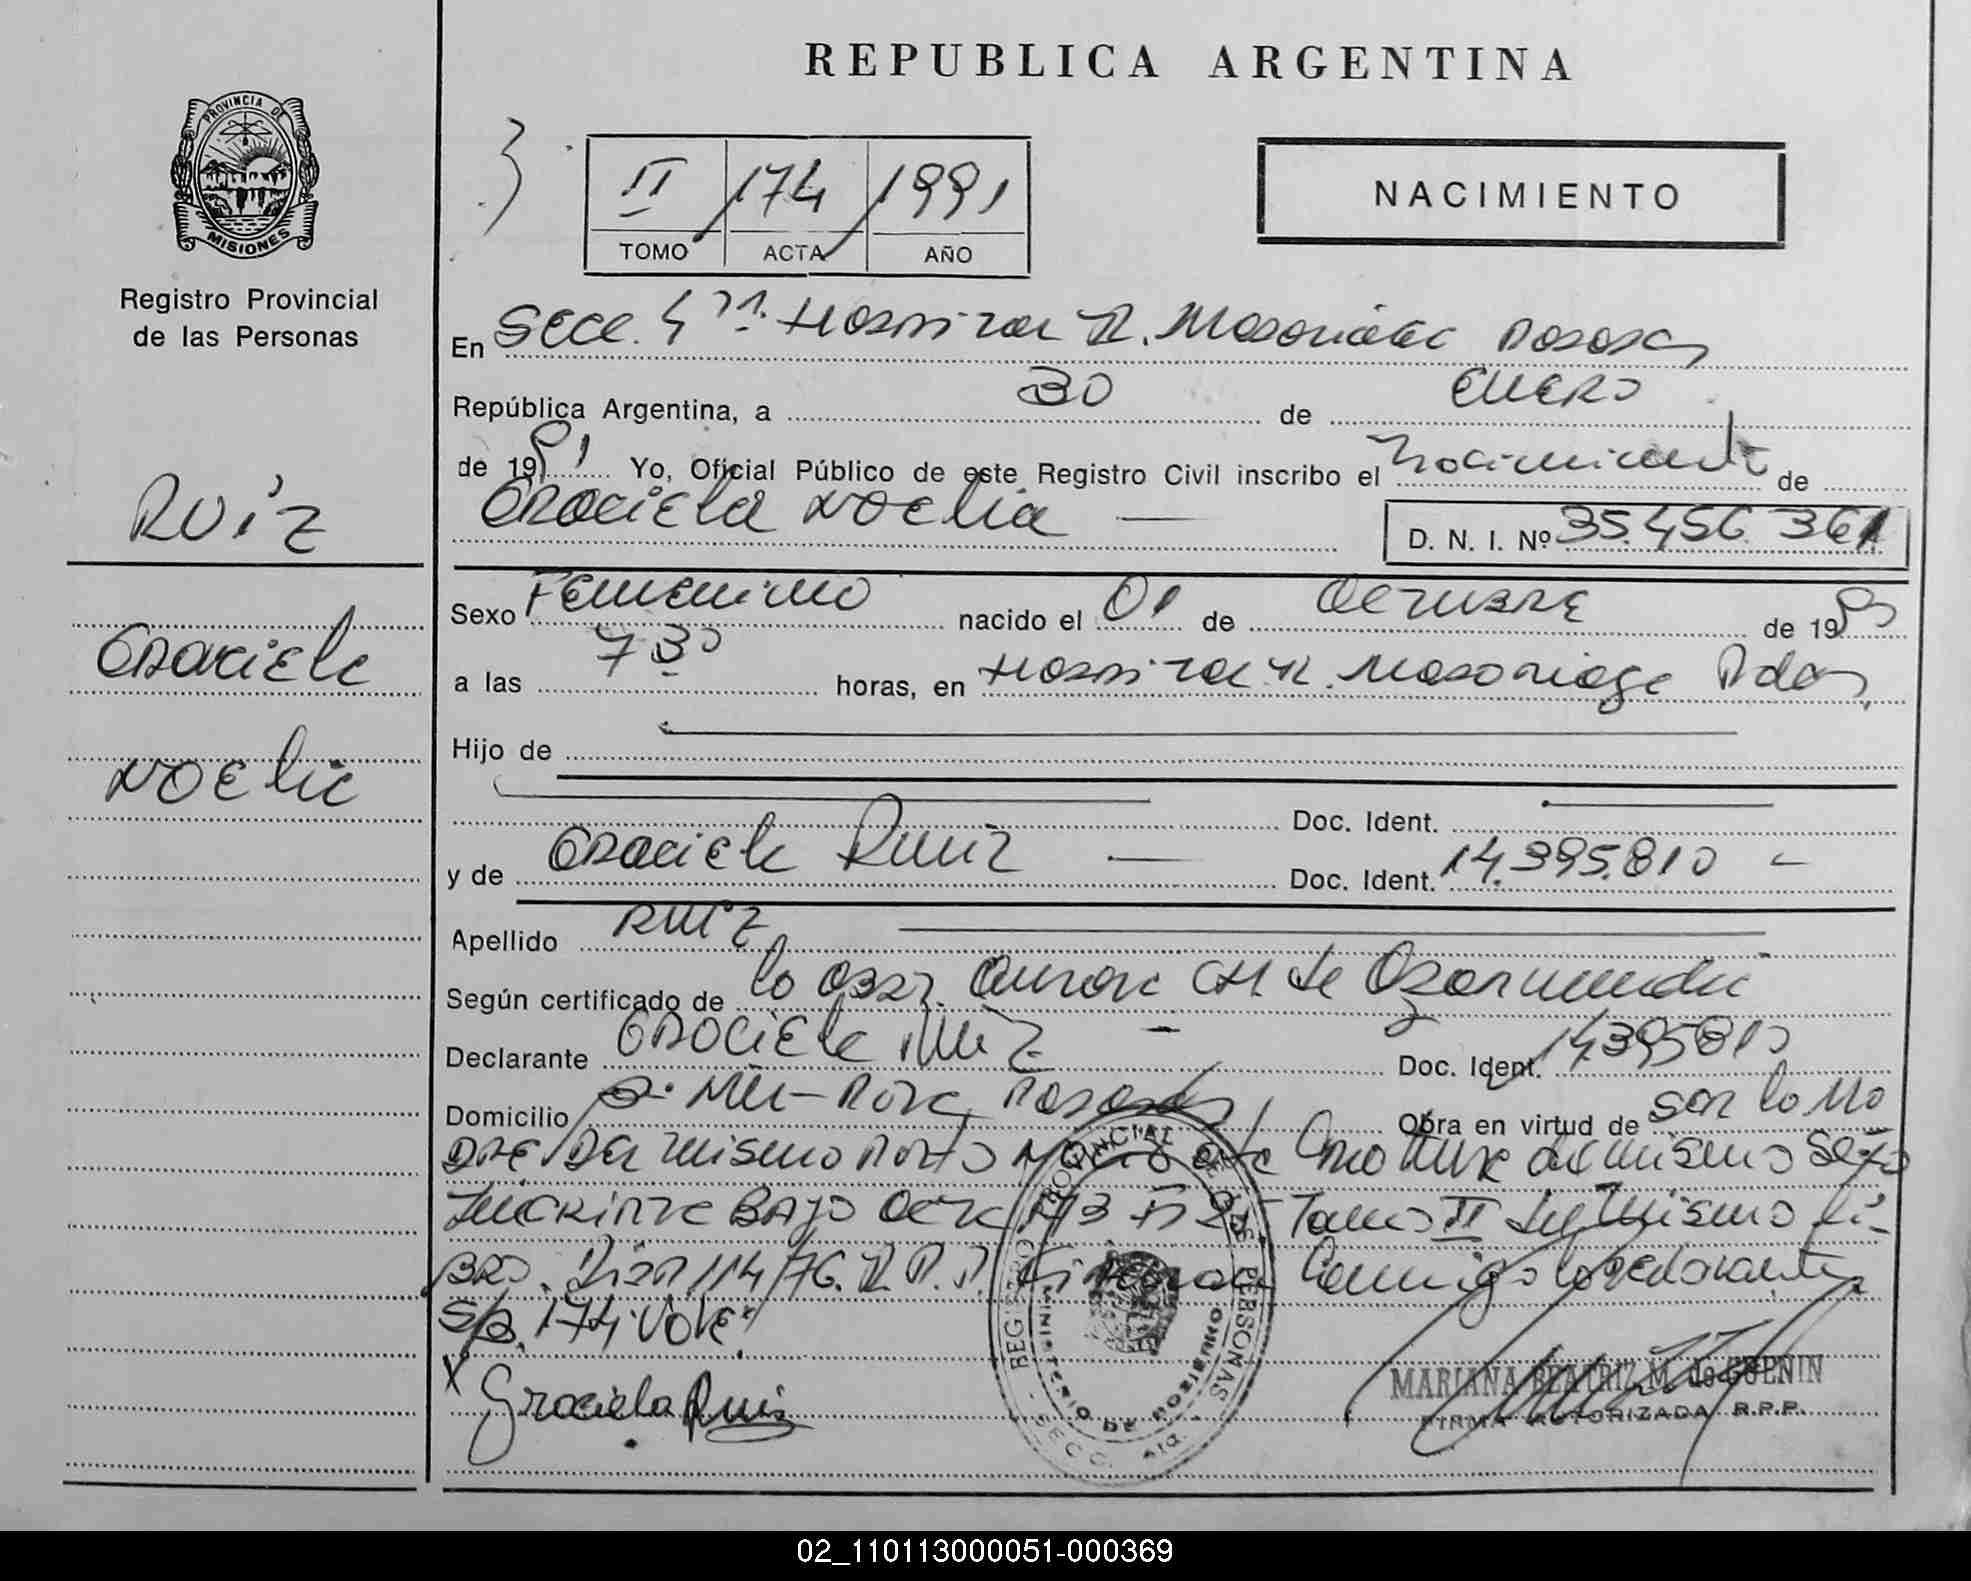 REPUBLICA ARGENTINA
PROVINCIA DE
MISIONES
Registro Provincial
de las Personas
II 174 1991
TOMO ACTA AÑO
NACIMIENTO
En Secc. 4ta. Hospital R. Madariaga Posadas
República Argentina, a 30 de ENERO
de 1991 Yo, Oficial Público de este Registro Civil inscribo el Nacimiento de
Graciela Noelia — D. N. I. Nº 35.456.361
Ruiz
Graciela
Noelia
Sexo Femenino nacido el 01 de Octubre de 1990
a las 7 30 horas, en Hospital R. Madariaga Pdas
Hijo de
Doc. Ident.
y de Graciela Ruiz — Doc. Ident. 14.395.810 -
Apellido Ruiz
Según certificado de la Obst. de
Declarante Graciela Ruiz - Doc. Ident. 14395810
Domicilio Posadas Obra en virtud de ser la Ma
dre Del mismo parto nació otra criatura del mismo sexo
inscripta Bajo acta 173 Tomo II del mismo li-
bro. 114/76. R.P.P. conmigo la declarante
s/r. 174. Vale.
X Graciela Ruiz
REGISTRO PROVINCIAL DE LAS PERSONAS
MINISTERIO DE GOBIERNO
MARIANA BEATRIZ M. de GUENIN
FIRMA AUTORIZADA R.P.P.
02_110113000051-000369